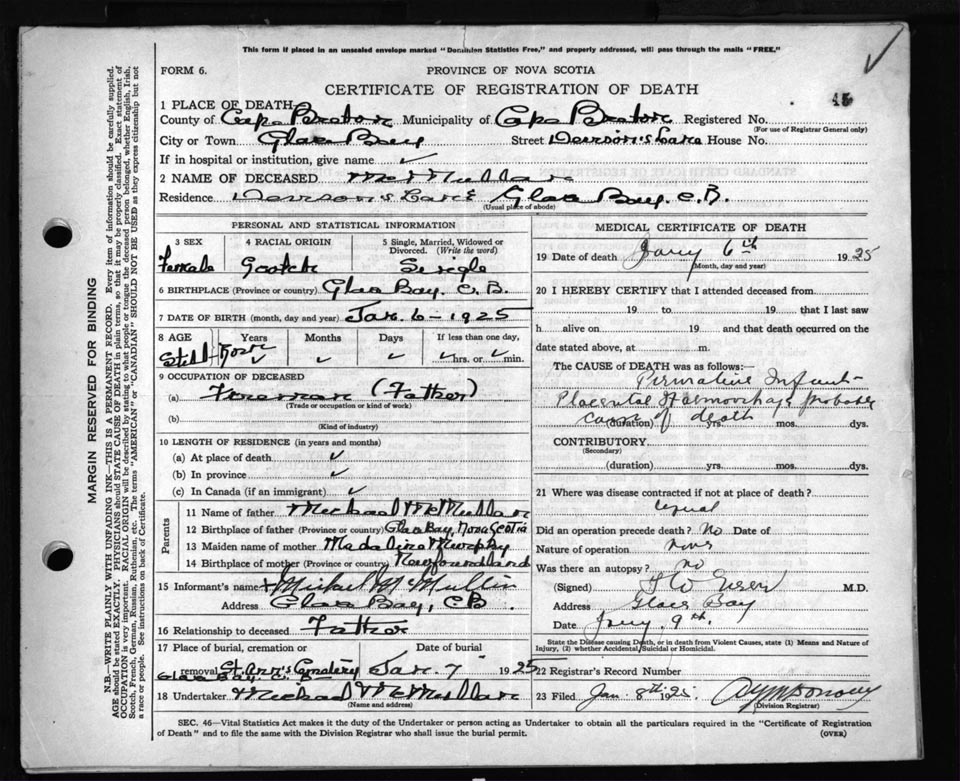 This form if placed in an unsealed envelope marked "Dominion Statistics Free," and properly addressed, will pass through the mails "FREE."
FORM 6.
PROVINCE OF NOVA SCOTIA
CERTIFICATE OF REGISTRATION OF DEATH
45
1 PLACE OF DEATH
County of Cape Breton Municipality of Cape Breton Registered No.
(For use of Registrar General only)
City or Town Glace Bay Street Lake House No.
If in hospital or institution, give name ✓
2 NAME OF DECEASED
Residence Glace Bay. C.B.
(Usual place of abode)
PERSONAL AND STATISTICAL INFORMATION
3 SEX 4 RACIAL ORIGIN 5 Single, Married, Widowed or Divorced. (Write the word)
Female Scotch Single
6 BIRTHPLACE (Province or country) Glace Bay. C.B.
7 DATE OF BIRTH (month, day and year) Jan. 6 - 1925
8 AGE Years Months Days If less than one day,
Still Born ✓ ✓ ✓ ✓ hrs. or ✓ min.
9 OCCUPATION OF DECEASED
(a) Foreman (Father)
(Trade or occupation or kind of work)
(b)
(Kind of industry)
10 LENGTH OF RESIDENCE (in years and months)
(a) At place of death ✓
(b) In province ✓
(c) In Canada (if an immigrant) ✓
Parents
11 Name of father Michael McMullin
12 Birthplace of father (Province or country) Glace Bay, Nova Scotia
13 Maiden name of mother Madaline Murphy
14 Birthplace of mother (Province or country) Newfoundland
15 Informant's name Michael McMullin
Address Glace Bay, C.B.
16 Relationship to deceased Father
17 Place of burial, cremation or removal Date of burial
St. Ann's Cemetery Jan. 7 1925
Glace Bay, C.B.
18 Undertaker Michael McMullin
(Name and address)
MEDICAL CERTIFICATE OF DEATH
19 Date of death Jany 6th 1925
(Month, day and year)
20 I HEREBY CERTIFY that I attended deceased from
19 to 19 that I last saw
h alive on 19 and that death occurred on the
date stated above, at m.
The CAUSE of DEATH was as follows:—
Premature Infant -
Placental Haemorrhage probable
cause of death
(duration) yrs. mos. dys.
CONTRIBUTORY.
(Secondary)
(duration) yrs. mos. dys.
21 Where was disease contracted if not at place of death?
Did an operation precede death? No Date of
Nature of operation none
Was there an autopsy? no
(Signed) M.D.
Address Glace Bay
Date Jany. 9th.
State the Disease causing Death, or in death from Violent Causes, state (1) Means and Nature of Injury, (2) whether Accidental, Suicidal or Homicidal.
22 Registrar's Record Number
23 Filed Jan. 8th 1925.
(Division Registrar)
SEC. 46—Vital Statistics Act makes it the duty of the Undertaker or person acting as Undertaker to obtain all the particulars required in the "Certificate of Registration
of Death" and to file the same with the Division Registrar who shall issue the burial permit. (OVER)
MARGIN RESERVED FOR BINDING
N.B.—WRITE PLAINLY WITH UNFADING INK—THIS IS A PERMANENT RECORD. Every item of information should be carefully supplied.
AGE should be stated EXACTLY. PHYSICIANS should STATE CAUSE OF DEATH in plain terms, so that it may be properly classified. Exact statement of
OCCUPATION is very important. RACIAL ORIGIN will be described by stating to what people or tongue the deceased person belonged, whether English, Irish,
Scotch, French, German, Russian, Ruthenian, etc. The terms "AMERICAN" or "CANADIAN" SHOULD NOT BE USED as they express citizenship but not
a race or people. See instructions on back of Certificate.